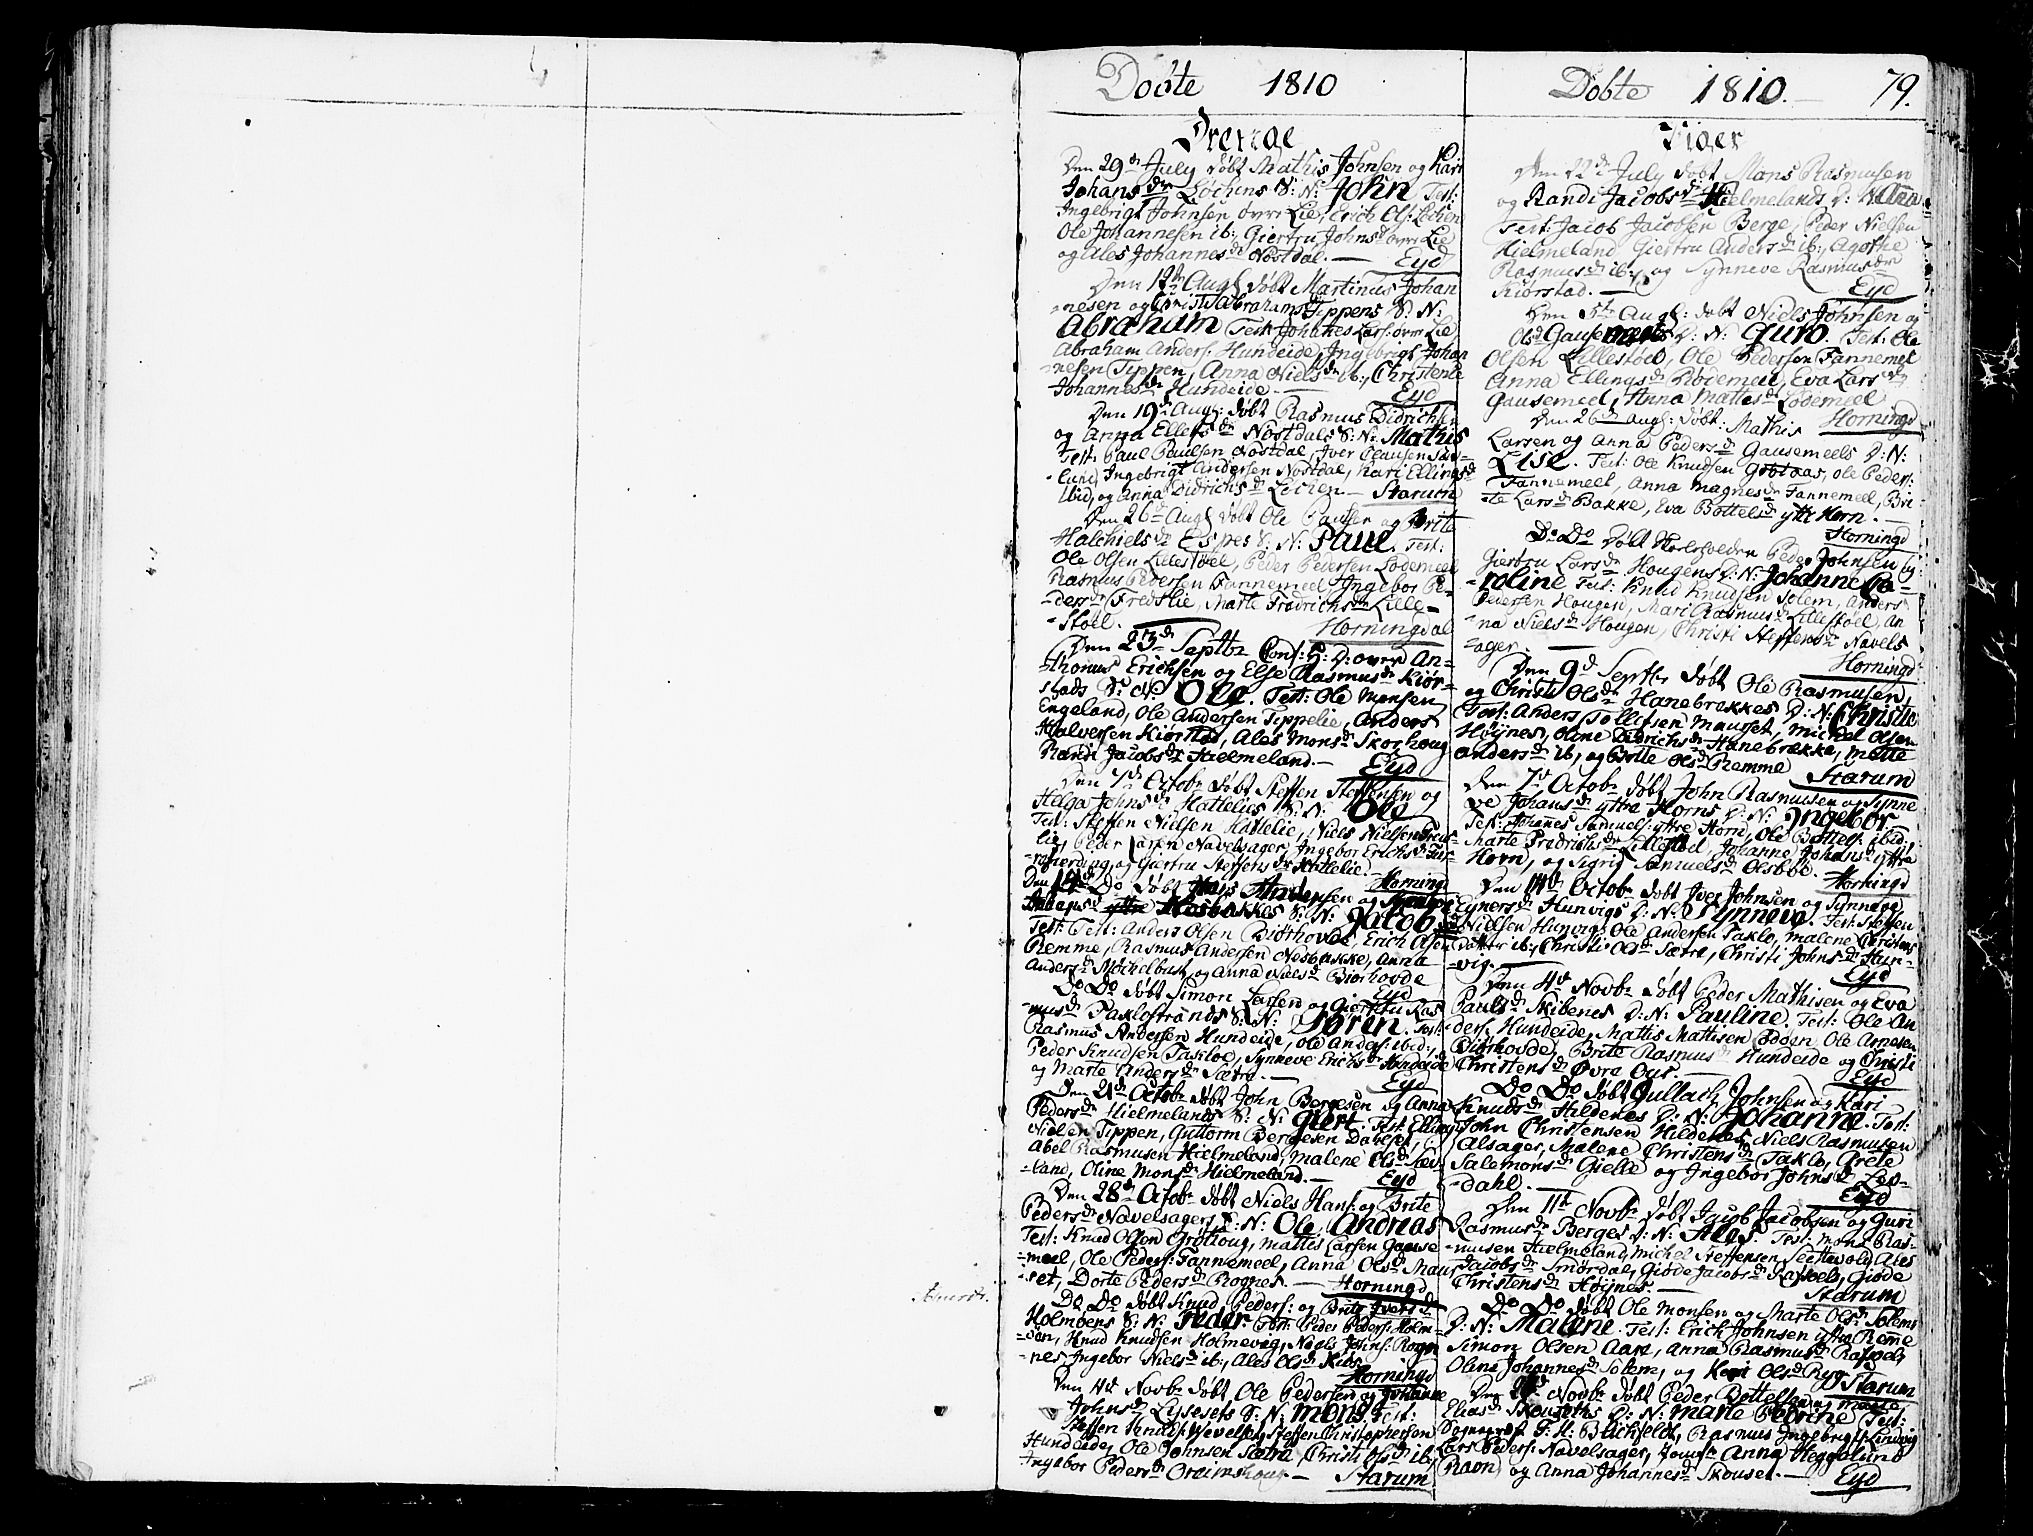 Døbte 1810
Drenge
Den 29de July døbt Mathis Johnsen og Kari
Johansdr Løchens S: N: John Test:
Ingebrigt Johnsen øvre Lie, Erich Ols: Løchen
Ole Johannesen ib:, Giertru Johnsd øvre Lie
og Ales Johannesdr Nostdal. — Eyd
Den 12te Aug: døbt Martinus Johan
-nesen og Abrahamsdr Tippens S: N:
Abraham Test: Johannes Lars: øvre Lie
Abraham Anders: Hundeide, Ingebrigt Johan
-nesen Tippen, Anna Nielsdr ib:, Christense
Johannesdr Hundeide. — Eyd
Den 19de Aug: døbt Rasmus Didrichsen
og Anna Ellefsdr Nostdals S: N: Mathis
Test: Paul Paulsen Nostdal, Iver Clausen
Ingebrigt Andersen Nostdal, Kari Ellingsdr
ibid, og Anna Didrichsdr Løchen — Starum
Den 26de Aug: døbt Ole Paulsen og Brite
Halchielsdr Espes S: N: Paul. Test:
Ole Olsen Lillestøel, Peder Pedersen Lødemeel
Rasmus Pedersen Fannemeel Ingebor Pe-
-dersdr Fredslie, Marte Fredrichsdr Lille-
-støel. — Horningdal
Den 23de Septbr Conf: H: D: over An-
-thonius Erichsen og Else Rasmusdr Kiør-
-stads S: N: Ole. Test: Ole Monsen
Engeland, Ole Andersen Tippelie, Anders
Halversen Kiørstad, Ales Monsdr Skorhoug
Randi Jacobsdr Hielmeland. — Eyd
Den 7de Octobr døbt Steffen Steffensen og
Helga Johnsdr Hattelies S: N: Ole
Test: Steffen Nielsen Hattelie, Niels Nielsen
lie, Peder Larsen Navelsager, Ingebor Erichsdr
og Giertru Steffensdr Hattelie. Horningd
Den 14de Do døbt Andersen og
Nesbakkes S: N: Jacob
Test: Anders Olsen Biørhovde, Erich Olsen
Remme, Rasmus Andersen Nesbakke, Anna
Andersdr Møchelbust, og Anna Nielsdr Biørhovde
Eyd
Do Do døbt Simon Larsen og Giertru Ras
musdr Taklostrands S: N: Søren. Test:
Rasmus Andersen Hundeide, Ole Anders: ibid:,
Peder Knudsen Takloe, Synneve Erichsdr Hundeide
og Marte Andersdr Sætre. — Eyd
Den 21de Octobr døbt John Børgesen og Anna
Pedersdr Hielmelands S: N: Giert. Test: Elling
Nielsen Tippen, Guttorm Børgesen
Abel Rasmusen Hielmeland, Malene Olsdr Sæv-
-land, Oline Monsdr Hielmeland. — Eyd
Den 28de Octobr døbt Niels Hans: og Brite
Pedersdr Navelsagers S: N: Ole Andreas
Test: Knud Olson Grøttoug, Mattis Larsen Gause
-meel, Ole Peders: Fannemeel, Anna Olsdr Maur
-set, Dorte Pedersdr Rognes. — Horningd
Do Do døbt Knud Peders: og Brite Iversdr
Holmøens S: N: Peder Test: Peder Peders: Holm-
-øen, Knud Knudsen Holmevig, Niels Johns: Rogn
-nes, Ingebor Nielsdr ib:, Ales Olsdr Kiøs
Horningd
Den 4de Novbr døbt Ole Pedersen og Johanne
Johnsdr Lysesets S: N: Mons Test:
Steffen Knuds: Wevelset, Steffen Christophersen
Hundeide, Ole Johnsen Sætre, Christi Olsdr ib:,
Ingebor Pedersdr Oreimshoug — Starum
Døbte 1810. — 79.
Piger
Den 22de July døbt Mons Rasmusen
og Randi Jacobsdr Hielmelands D: N: Anna
Test: Jacob Jacobsen Berge, Peder Nielsen
Hielmeland, Giertru Andersdr ib:, Agothe
Rasmusdr ib:, og Synneve Rasmusdr
Kiørstad. — Eyd
Den 5te Aug: døbt Niels Johnsen og
Olsd Gausemeels D: N: Guro. Test: Ole
Olsen Lillestøel, Ole Pedersen Fannemel
Anna Ellingsdr Rødemeel, Eva Larsdr
Gausemeel, Anna Mattisdr Lødemeel
Horningd
Den 26de Aug: døbt: Mathis
Larsen og Anna Pedersdr Gausemeels D: N:
Lise. Test: Ole Knudsen Gøstaas, Ole Peders:
Fannemeel, Anna Magnesdr Fannemeel, Bri-
-te Larsdr Bakke, Eva Bottelsdr ytre Horn. —
Horningd
Do Do døbt Peder Johnsen og
Giertru Larsdr Hougens D: N: Johanne Ca-
-roline Test: Knud Knudsen Solem, Anders
Pedersen Hougen, Mari Rasmusdr Lillestøel, An
-na Nielsdr Hougen, Christi Steffensdr Navels
-ager. — Horningd
Den 9d Septbr døbt Ole Rasmusen
og Christi Olsdr Hanebrekkes D: N: Christie
Test: Anders Tollefsen Maurset, Michel Olsen
Høynes, Oline Didrichsdr Hanebrekke, Mette
Andersdr ib, og Brite Olsdr Remme Starum
Den 7d Octobr døbt John Rasmusen og Synne
ve Johansdr yttre Horns D: N: Ingebor
Test: Johanes Samuels: yttre Horn, Ole Bottels: ibid:
Marte Fredrichsdr Lillestøel, Johanne Johansdr yttre
Horn, og Sigri Samuelsdr Olsbøe. Horningd
Den 14de Octobr døbt Iver Johnsen og Synneve
Eynersdr Hunvigs D: N: Synneva. Test: Steffen
Nielsen Hunvig, Ole Andersen Taklo, Malene Christens
datter ib:, Christi Olsdr Sætre, Christi Johnsdr Hun-
-vig. — Eyd
Den 4de Novbr døbt Peder Mathisen og Eva
Paulsdr Skibenes D: N: Pauline. Test: Ole An
ders: Hundeide, Mattis Mattisen Bødøen Ole Arnesen
Biørhovde, Brite Rasmusdr Hundeide og Christi
Christensdr Øvre Ous. — Eyd
Do Do døbt Gullach Johnsen og Kari
Knudsdr Hildenes D: N: Johanna. Test:
John Christensen Hildenes, Niels Rasmusen
Alsager, Malene Christensdr Taklo, Grete
Salemonsdr Gielle og Ingebor Johnsdr Lee-
-dahl. — Eyd
Den 11te Novbr døbt Jacob Jacobsen og Guri
Rasmusdr Berges D: N: Ales Test: Mons Ras-
-musen Hielmeland, Michel Steffensen, Ales
Jacobsdr Smørdal, Giøde Jacobsdr Giøde
Christensdr Høynes. — Starum
Do Do døbt Ole Monsen og Marte Olsdr Solems
D: N: Malene. Test: Erich Johnsen yttre Reme
Simon Olsen Aan, Anna Rasmusdr
Oline Johannesdr Solem, og Kari Olsdr Ryg Starum
Den Novbr døbt Peder Bottelsen og Marte
Eliasdr Skouseths D: N: Marie Petrine Test:
Sognepræst F: H: Buchfeldt, Rasmus Ingebrigts: Lindvig
Lars Peders: Navelsager, Jomfr Anna Heggelund
Ravn, og Anna Johannesdr Skouset. — Eyd